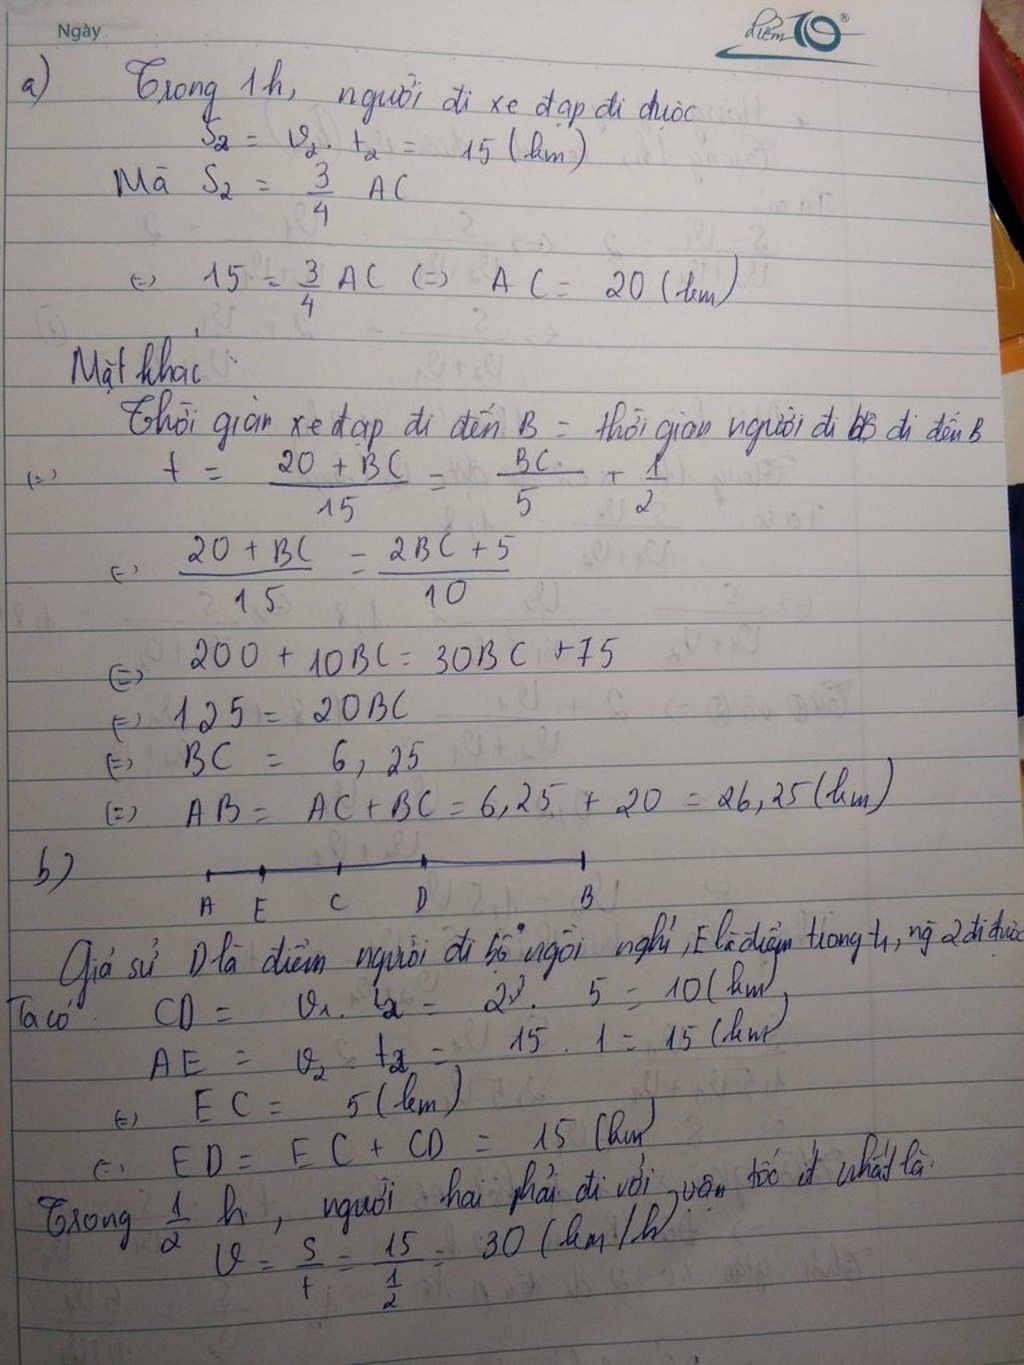 Ngày
điểm 10®
a) Trong 1h, người đi xe đạp đi được
S₂ = v₂. t₂ = 15 (km)
Mà S₂ = 3/4 AC
(=) 15 = 3/4 AC (=) AC = 20 (km)
Mặt khác:
Thời gian xe đạp đi đến B = thời gian người đi bộ đi đến B
(=) t = (20 + BC)/15 = BC/5 + 1/2
(=) (20 + BC)/15 = (2BC + 5)/10
(=) 200 + 10BC = 30BC + 75
(=) 125 = 20BC
(=) BC = 6,25
(=) AB = AC + BC = 6,25 + 20 = 26,25 (km)
b)
A E C D B
Giả sử D là điểm người đi bộ ngồi nghỉ, E là điểm trong 1h, ng 2 đi được
Ta có: CD = v₁. t₂ = 2. 5 = 10 (km)
AE = v₂ . t₂ = 15 . 1 = 15 (km)
(=) EC = 5 (km)
(=) ED = EC + CD = 15 (km)
Trong 1/2 h, người hai phải đi với vận tốc ít nhất là:
v = S/t = 15/(1/2) = 30 (km/h)